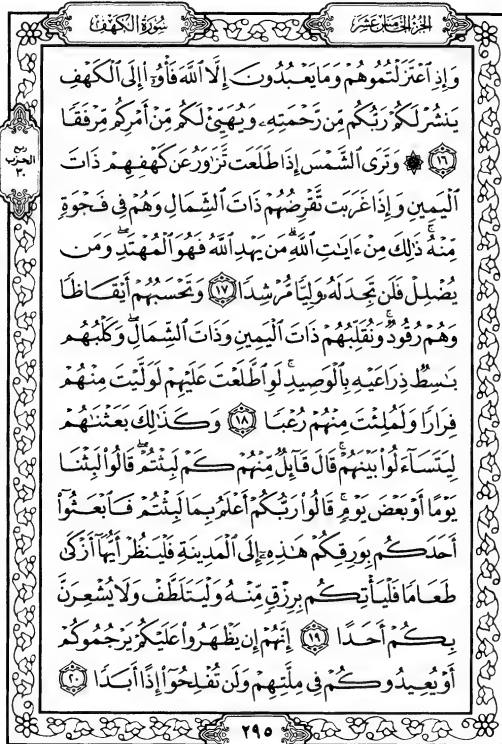 الجزء الخامس عشر
سورة الكهف
وَإِذِ ٱعْتَزَلْتُمُوهُمْ وَمَا يَعْبُدُونَ إِلَّا ٱللَّهَ فَأْوُۥٓا۟ إِلَى ٱلْكَهْفِ
يَنشُرْ لَكُمْ رَبُّكُم مِّن رَّحْمَتِهِۦ وَيُهَيِّئْ لَكُم مِّنْ أَمْرِكُم مِّرْفَقًا
ربع
الحزب
٣٠
﴿١٦﴾ ۞ وَتَرَى ٱلشَّمْسَ إِذَا طَلَعَت تَّزَٰوَرُ عَن كَهْفِهِمْ ذَاتَ
ٱلْيَمِينِ وَإِذَا غَرَبَت تَّقْرِضُهُمْ ذَاتَ ٱلشِّمَالِ وَهُمْ فِى فَجْوَةٍ
مِّنْهُ ۚ ذَٰلِكَ مِنْ ءَايَٰتِ ٱللَّهِ ۗ مَن يَهْدِ ٱللَّهُ فَهُوَ ٱلْمُهْتَدِ ۖ وَمَن
يُضْلِلْ فَلَن تَجِدَ لَهُۥ وَلِيًّا مُّرْشِدًا ﴿١٧﴾ وَتَحْسَبُهُمْ أَيْقَاظًا
وَهُمْ رُقُودٌ ۚ وَنُقَلِّبُهُمْ ذَاتَ ٱلْيَمِينِ وَذَاتَ ٱلشِّمَالِ ۖ وَكَلْبُهُم
بَٰسِطٌ ذِرَاعَيْهِ بِٱلْوَصِيدِ ۚ لَوِ ٱطَّلَعْتَ عَلَيْهِمْ لَوَلَّيْتَ مِنْهُمْ
فِرَارًا وَلَمُلِئْتَ مِنْهُمْ رُعْبًا ﴿١٨﴾ وَكَذَٰلِكَ بَعَثْنَٰهُمْ
لِيَتَسَآءَلُوا۟ بَيْنَهُمْ ۚ قَالَ قَآئِلٌ مِّنْهُمْ كَمْ لَبِثْتُمْ ۖ قَالُوا۟ لَبِثْنَا
يَوْمًا أَوْ بَعْضَ يَوْمٍ ۚ قَالُوا۟ رَبُّكُمْ أَعْلَمُ بِمَا لَبِثْتُمْ فَٱبْعَثُوٓا۟
أَحَدَكُم بِوَرِقِكُمْ هَٰذِهِۦٓ إِلَى ٱلْمَدِينَةِ فَلْيَنظُرْ أَيُّهَآ أَزْكَىٰ
طَعَامًا فَلْيَأْتِكُم بِرِزْقٍ مِّنْهُ وَلْيَتَلَطَّفْ وَلَا يُشْعِرَنَّ
بِكُمْ أَحَدًا ﴿١٩﴾ إِنَّهُمْ إِن يَظْهَرُوا۟ عَلَيْكُمْ يَرْجُمُوكُمْ
أَوْ يُعِيدُوكُمْ فِى مِلَّتِهِمْ وَلَن تُفْلِحُوٓا۟ إِذًا أَبَدًا ﴿٢٠﴾
٢٩٥